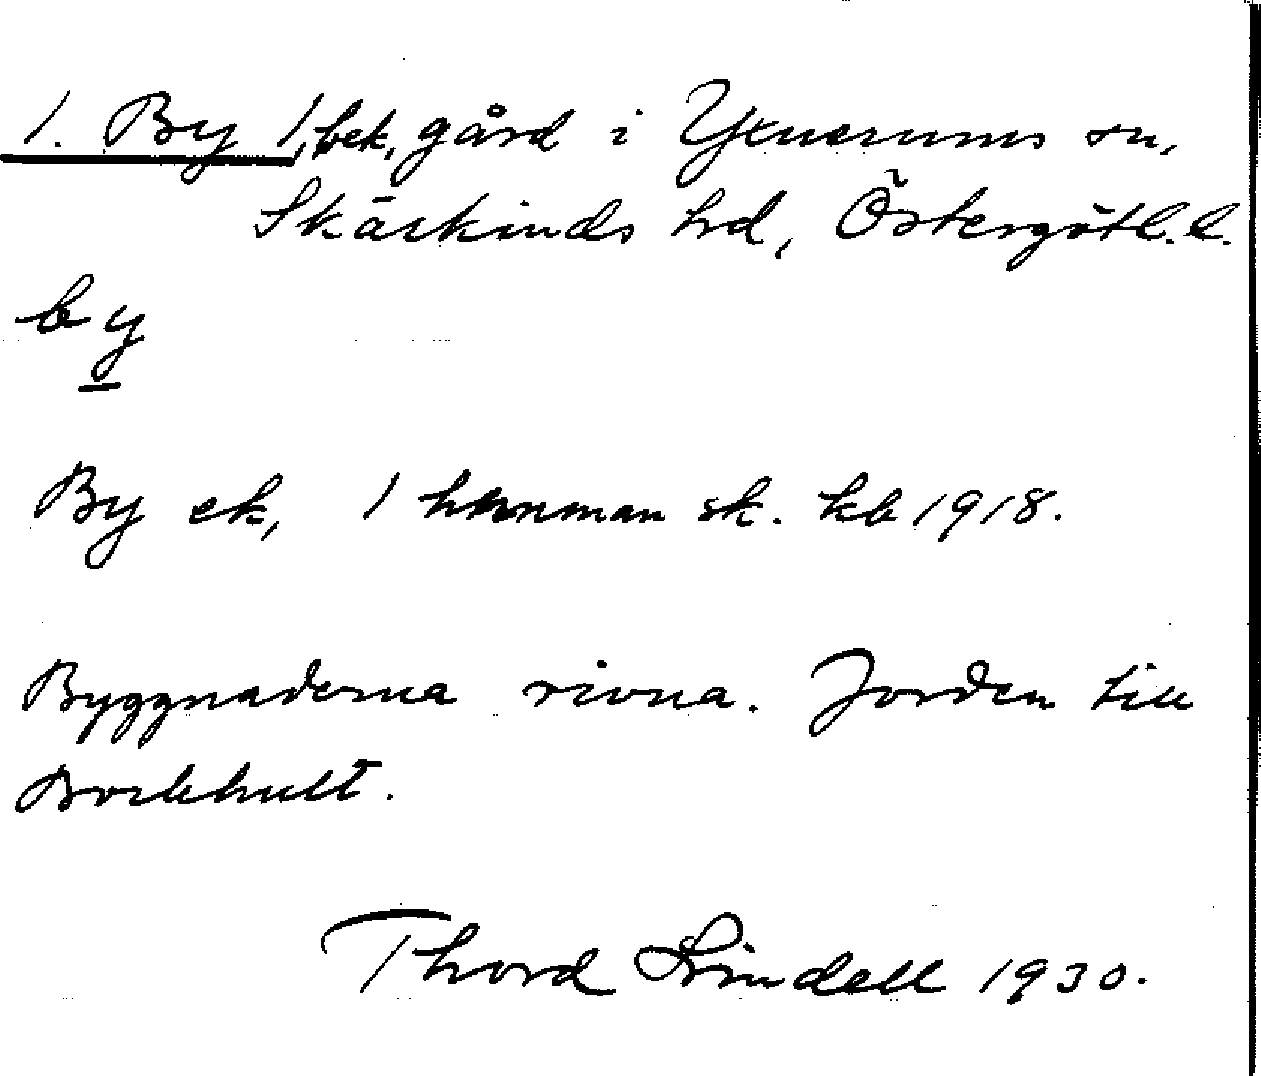 1. By 1, bek, gård i Yxnerums sn,
Skärkinds hd, Östergötl. l.
by
By ek, 1 hemman sk. kb 1918.
Byggnaderna rivna. Jorden till
Borkhult.
Thord Lindell 1930.